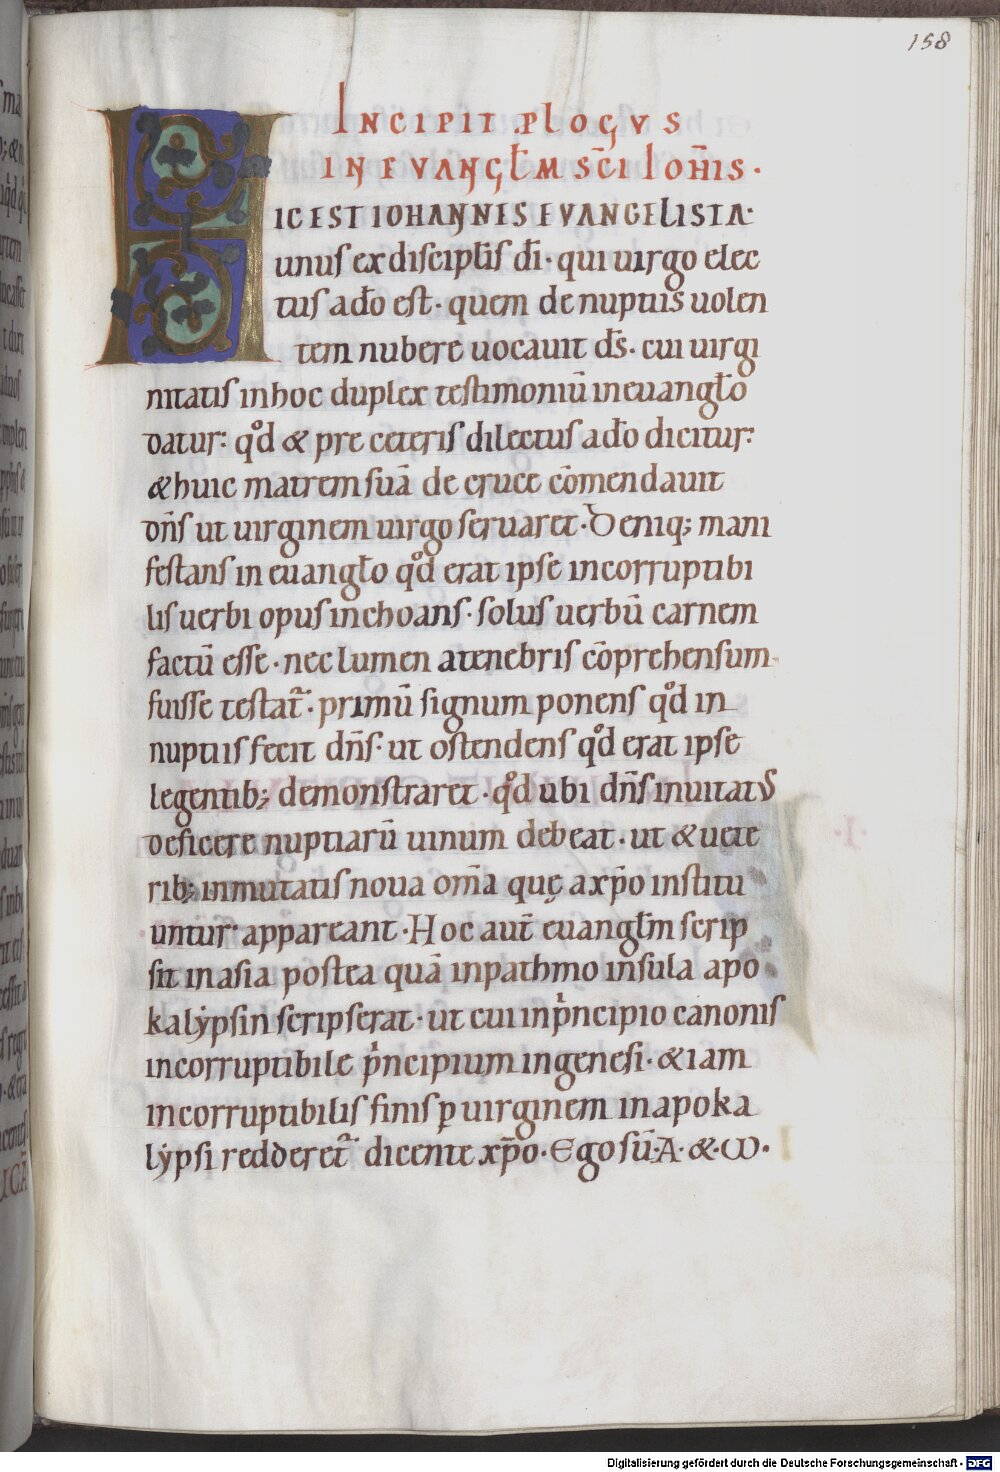 158
INCIPIT PLOGVS
IN EVANGL̄M SC̄I IOH̄IS·
HIC EST IOHANNES EVANGELISTA·
unus ex discipl̄is dī· qui uirgo elec
tus ad̄o est· quem de nuptiis uolen
tem nubere uocauit d̄s· cui uirgi
nitatis in hoc duplex testimoniū in euangl̄o
datur: qd̊ & pre ceteris dilectus ad̄o dicitur:
& huic matrem suā de cruce cōmendauit
dn̄s ut uirginem uirgo seruaret· Deniq; mani
festans in euangl̄o qd̊ erat ipse incorruptibi
lis uerbi opus inchoans· solus uerbū carnem
factū esse· nec lumen atenebris cōprehensum
fuisse testat̄· primū signum ponens qd̊ in
nuptiis fecit dn̄s· ut ostendens qd̊ erat ipse
legentib; demonstraret· qd̊ ubi dn̄s inuitat᾽
deficere nuptiarū uinum debeat· ut & uete
rib; inmutatis noua om̄a quę axp̄o institu
untur· appareant· Hoc aut̄ euangl̄m scrip
sit in asia postea quā inpathmo insula apo
kalẏpsin scripserat· ut cui inpͥncipio canonis
incorruptibile pͥncipium ingenesi· & iam
incorruptibilis finis ꝑ uirginem in apoka
lẏpsi redderet̄ dicente xp̄o· Ego sū· A· &· ω·
Digitalisierung gefördert durch die Deutsche Forschungsgemeinschaft · DFG